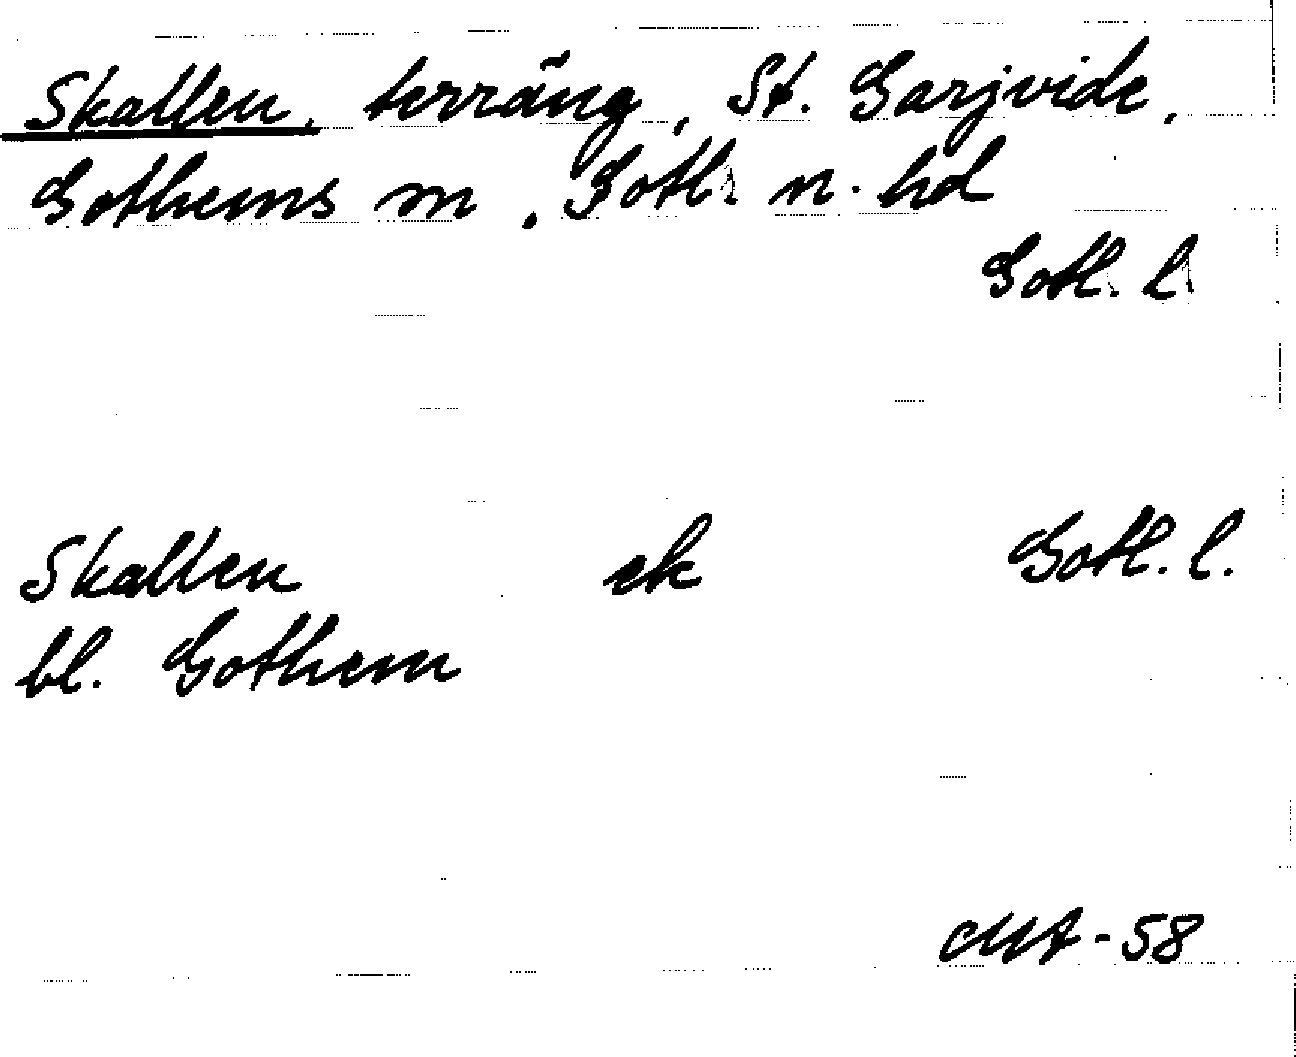 Skallen, terräng, St. Garjvide,
Gothems sn, Gotl. n. hd
Gotl. l.
Skallen ek Gotl. l.
bl. Gothem
MA-58